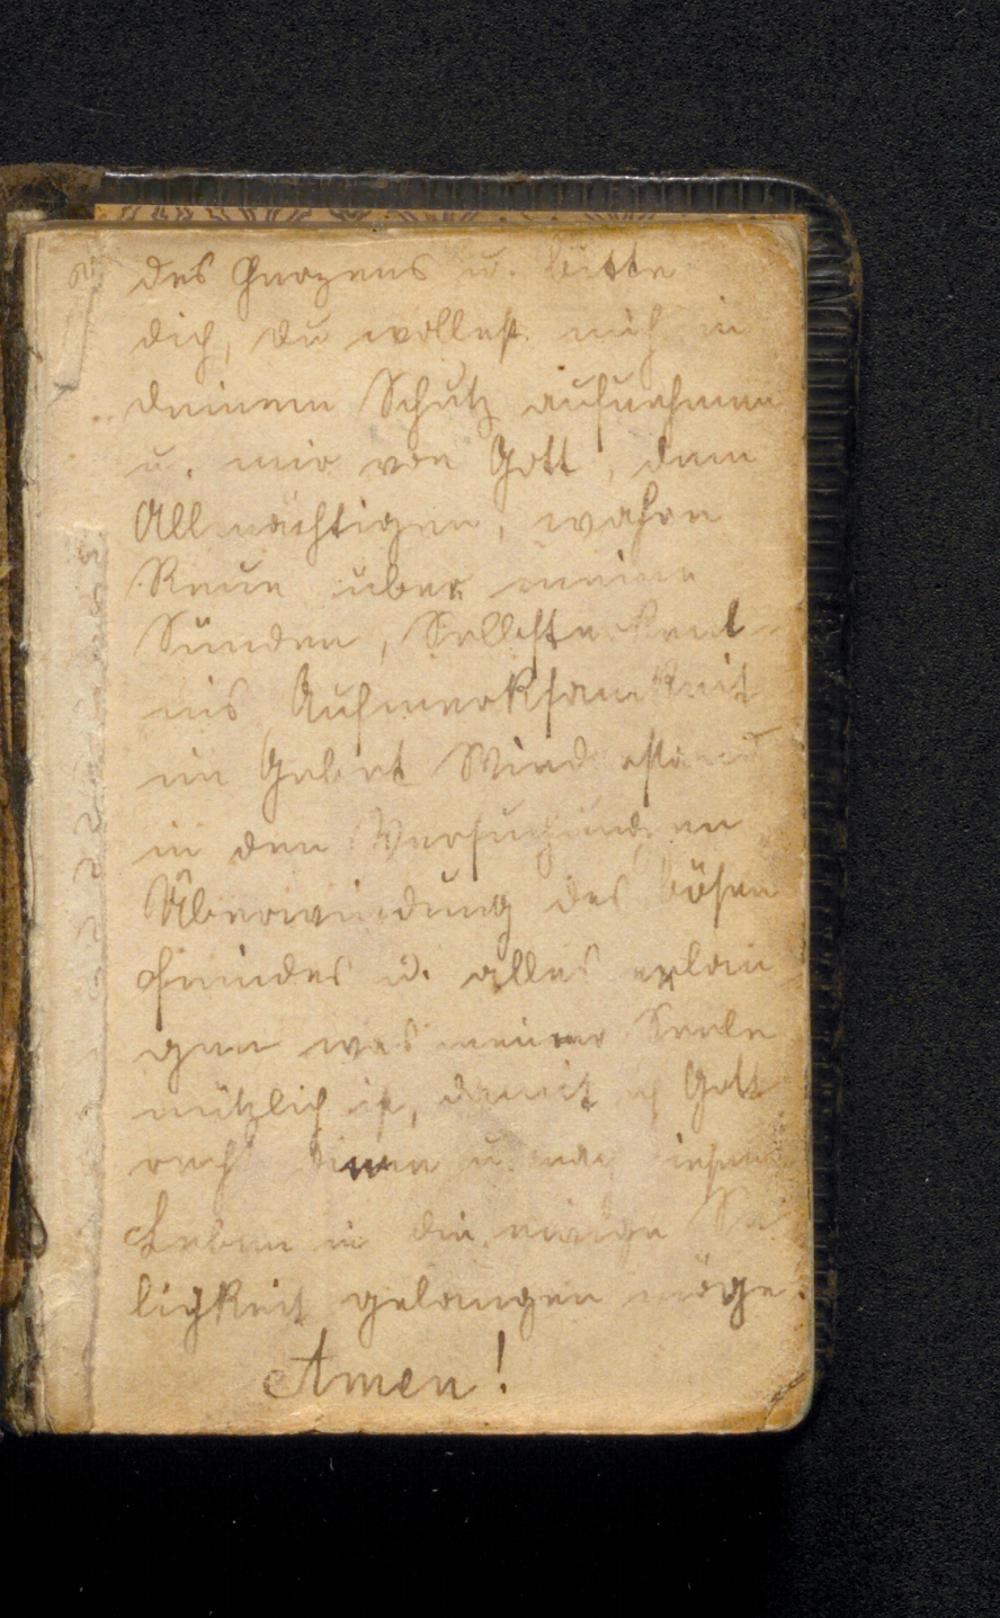 des Herzens u. bitte
dich, du wollest mich in
deinem Schutz aufnehmen
u. mir von Gott, dem
Allmächtigen, wahre
Reue über meine
Sünden, Selbsterkent-
nis Aufmerksamkeit
im Gebet Widerstand
in den Versuchungen
Überwindung des bösen
Feindes u. alles erlan
gen was meiner Seele
nützlich ist, damit ich Gott
recht dienen u. nach
Leben in die ewige Se
ligkeit gelangen möge.
Amen!